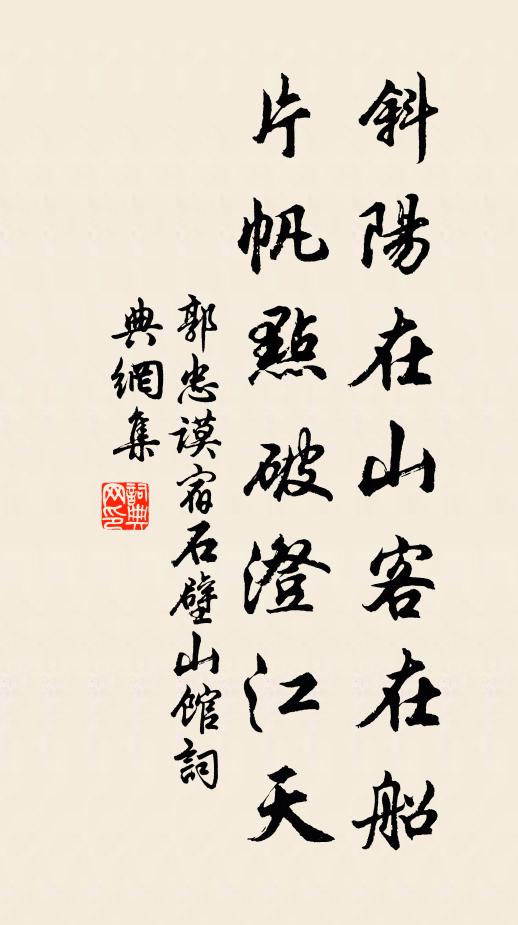 斜陽在山客在船
片帆點破澄江天
郭忠謨宿石壁山館詞
典網集
詞典網印